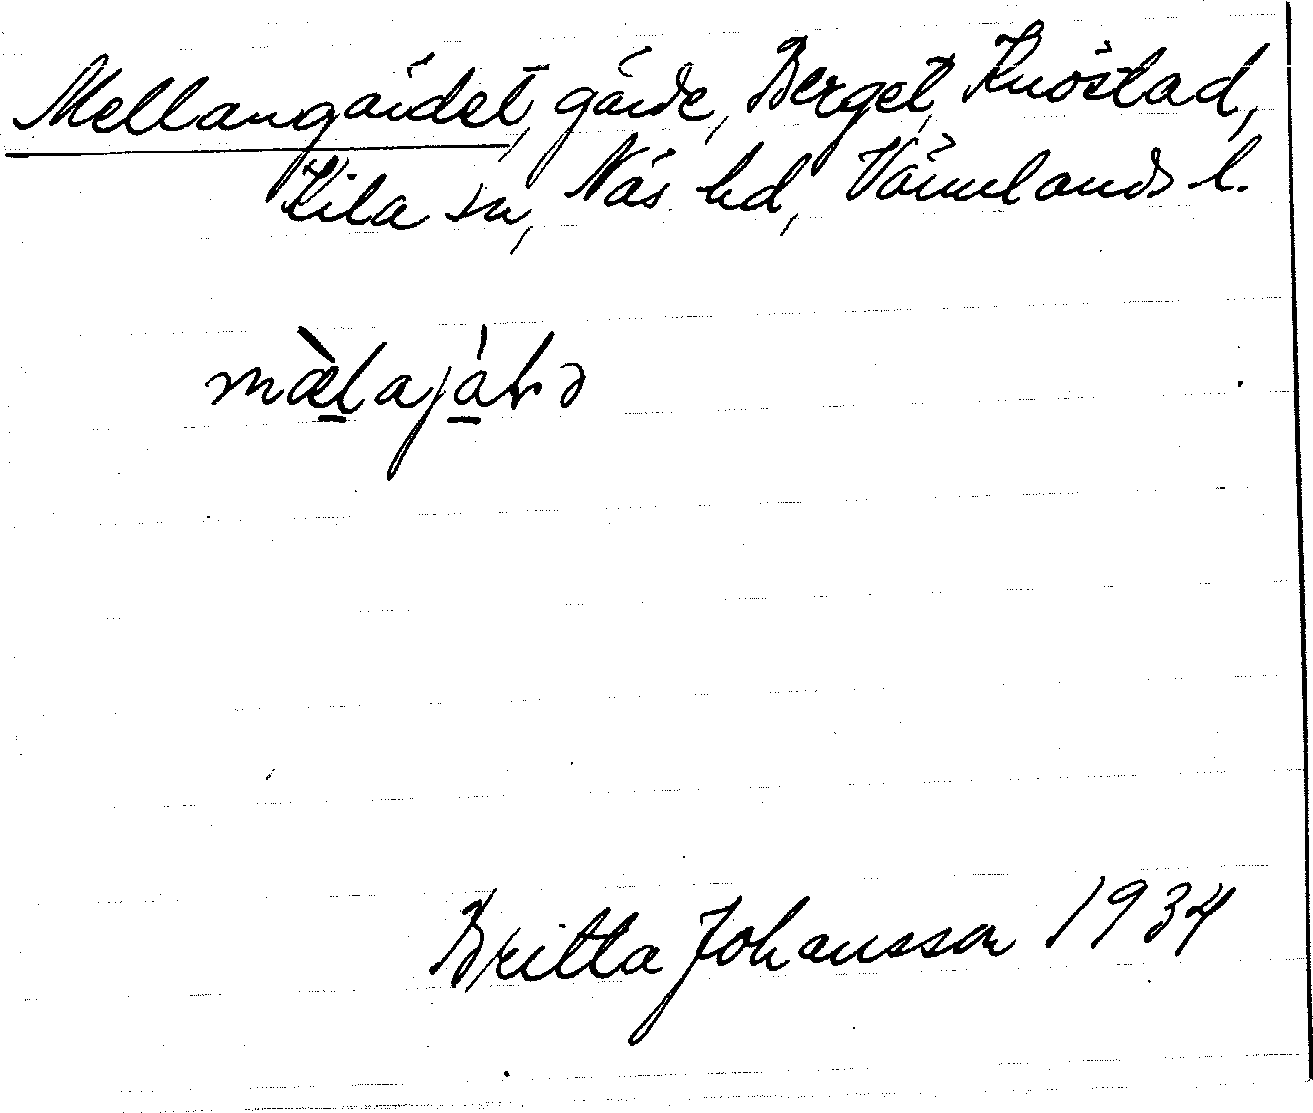 Mellangärdet, gärde, Berget, Knöstad,
Kila sn, Näs hd, Värmlands l.
mæ̀lajáḷə
Britta Johansson 1934